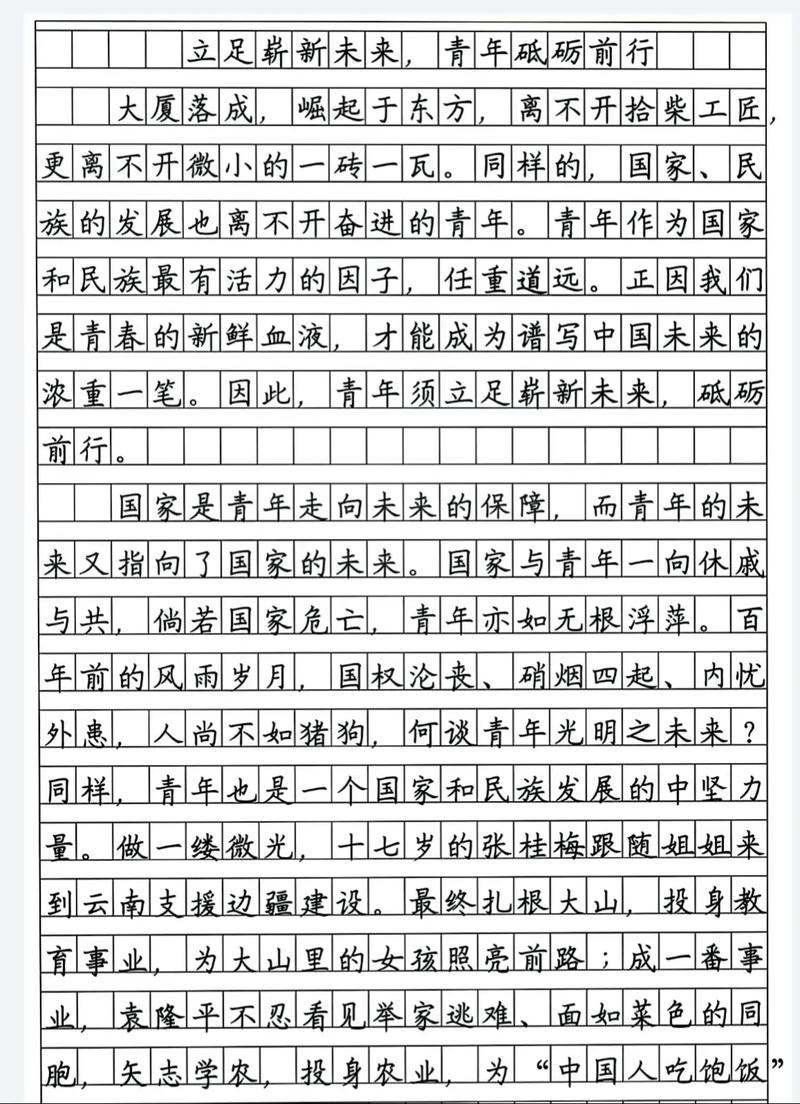 立足崭新未来，青年砥砺前行
大厦落成，崛起于东方，离不开拾柴工匠，
更离不开微小的一砖一瓦。同样的，国家、民
族的发展也离不开奋进的青年。青年作为国家
和民族最有活力的因子，任重道远。正因我们
是青春的新鲜血液，才能成为谱写中国未来的
浓重一笔。因此，青年须立足崭新未来，砥砺
前行。
国家是青年走向未来的保障，而青年的未
来又指向了国家的未来。国家与青年一向休戚
与共，倘若国家危亡，青年亦如无根浮萍。百
年前的风雨岁月，国权沦丧、硝烟四起、内忧
外患，人尚不如猪狗，何谈青年光明之未来？
同样，青年也是一个国家和民族发展的中坚力
量。做一缕微光，十七岁的张桂梅跟随姐姐来
到云南支援边疆建设。最终扎根大山，投身教
育事业，为大山里的女孩照亮前路；成一番事
业，袁隆平不忍看见举家逃难、面如菜色的同
胞，矢志学农，投身农业，为“中国人吃饱饭”